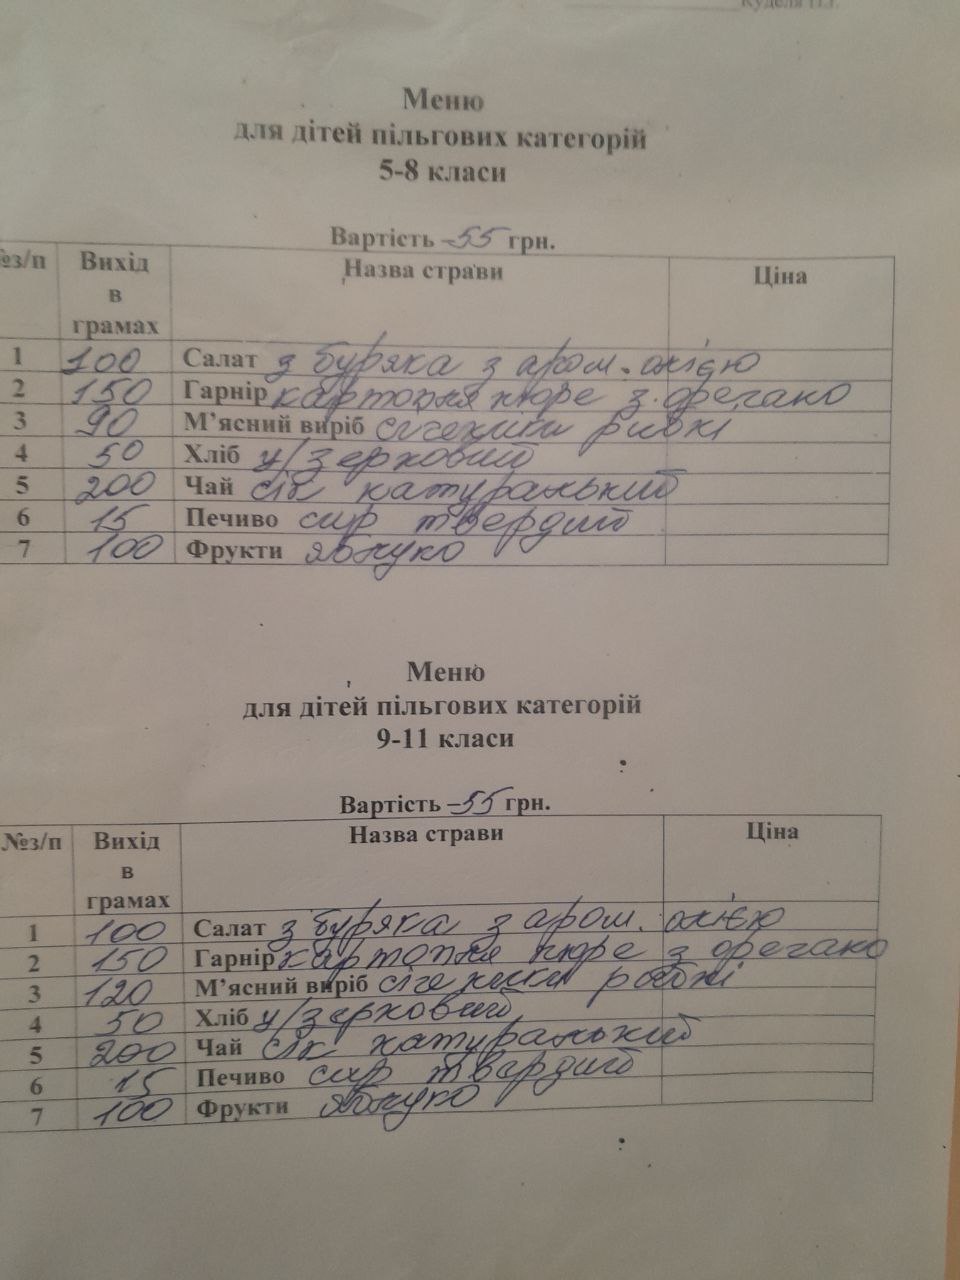 Куделя П.Г.
Меню
для дітей пільгових категорій
5-8 класи
Вартість – 55 грн.
№з/п Вихід в грамах Назва страви Ціна
1 100 Салат з буряка з аром. олією
2 150 Гарнір картопля пюре з орегано
3 90 М’ясний виріб січеники рибні
4 50 Хліб у/зерновий
5 200 Чай сік натуральний
6 15 Печиво сир твердий
7 100 Фрукти яблуко
Меню
для дітей пільгових категорій
9-11 класи
Вартість – 55 грн.
№з/п Вихід в грамах Назва страви Ціна
1 100 Салат з буряка з аром. олією
2 150 Гарнір картопля пюре з орегано
3 120 М’ясний виріб січеники рибні
4 50 Хліб у/зерновий
5 200 Чай сік натуральний
6 15 Печиво сир твердий
7 100 Фрукти яблуко